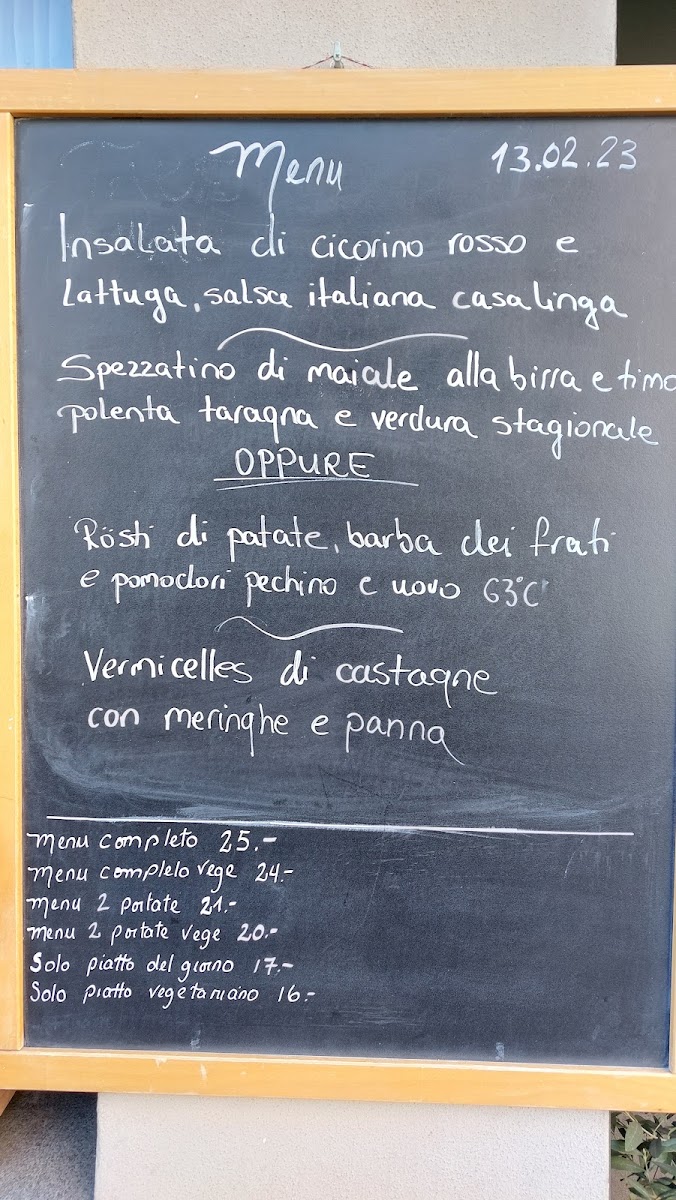 Menu 13.02.23
Insalata di cicorino rosso e
Lattuga, salsa italiana casalinga
Spezzatino di maiale alla birra e timo
polenta taragna e verdura stagionale
OPPURE
Rösti di patate, barba dei frati
e pomodori pechino e uovo 63°C
Vermicelles di castagne
con meringhe e panna
Menu completo 25.-
Menu completo vege 24.-
Menu 2 portate 21.-
Menu 2 portate vege 20.-
Solo piatto del giorno 17.-
Solo piatto vegetariano 16.-